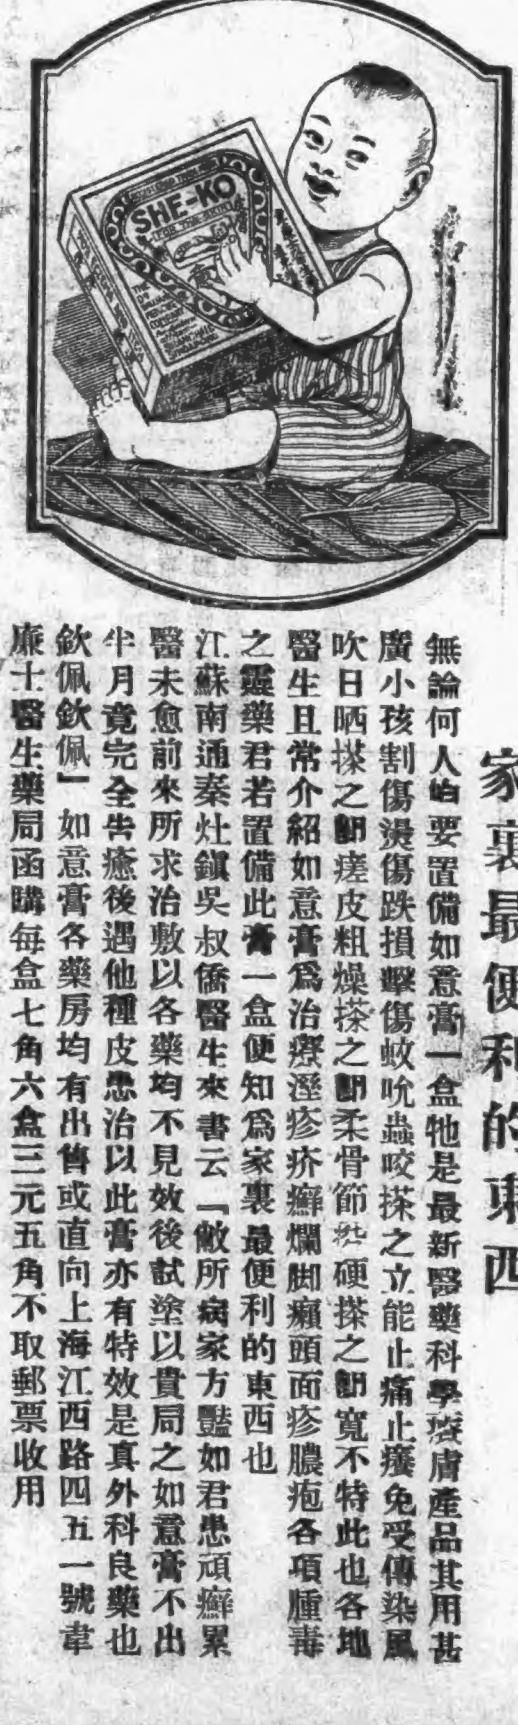 家裏最便利的東西
無論何人均要置備如意膏一盒牠是最新醫藥科學護膚產品其用甚
廣小孩割傷燙傷跌損擊傷蚊吮蟲咬搽之立能止痛止癢免受傳染風
吹日晒搽之卽瘥皮粗燥搽之卽柔骨節硬搽之卽寬不特此也各地
醫生且常介紹如意膏爲治療溼疹疥癬爛脚癩頭面疹膿疱各項腫毒
之靈藥君若置備此膏一盒便知爲家裏最便利的東西也
江蘇南通秦灶鎮吳叔僑醫生來書云『敝所病家方豔如君患頑癬累
醫未愈前來所求治敷以各藥均不見效後試塗以貴局之如意膏不出
半月竟完全告癒後遇他種皮患治以此膏亦有特效是真外科良藥也
欽佩欽佩』如意膏各藥房均有出售或直向上海江西路四五一號韋
廉士醫生藥局函購每盒七角六盒三元五角不取郵票收用
SHE-KO
FOR THE SKIN
THE
DR
WILLIAMS
MEDICINE
COMPANY
SHANGHAI